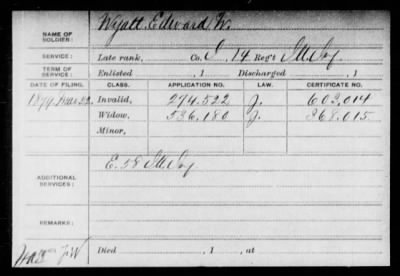 NAME OF SOLDIER: Wyatt, Edward W.
SERVICE: Late rank, Co. I, 14 Reg't Ill Inf.
TERM OF SERVICE: Enlisted , 1 Discharged , 1
DATE OF FILING. CLASS. APPLICATION NO. LAW. CERTIFICATE NO.
1879 Mar. 22. Invalid, 274.522 J. 603.014
Widow, 536,180 J. 368.015
Minor,
ADDITIONAL SERVICES: E. 58 Ill Inf
REMARKS:
Died , 1 , at